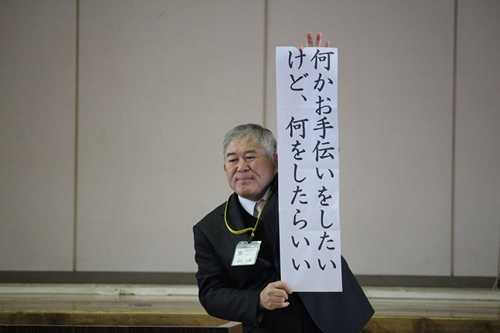 何かお手伝いをしたい
けど、何をしたらいい